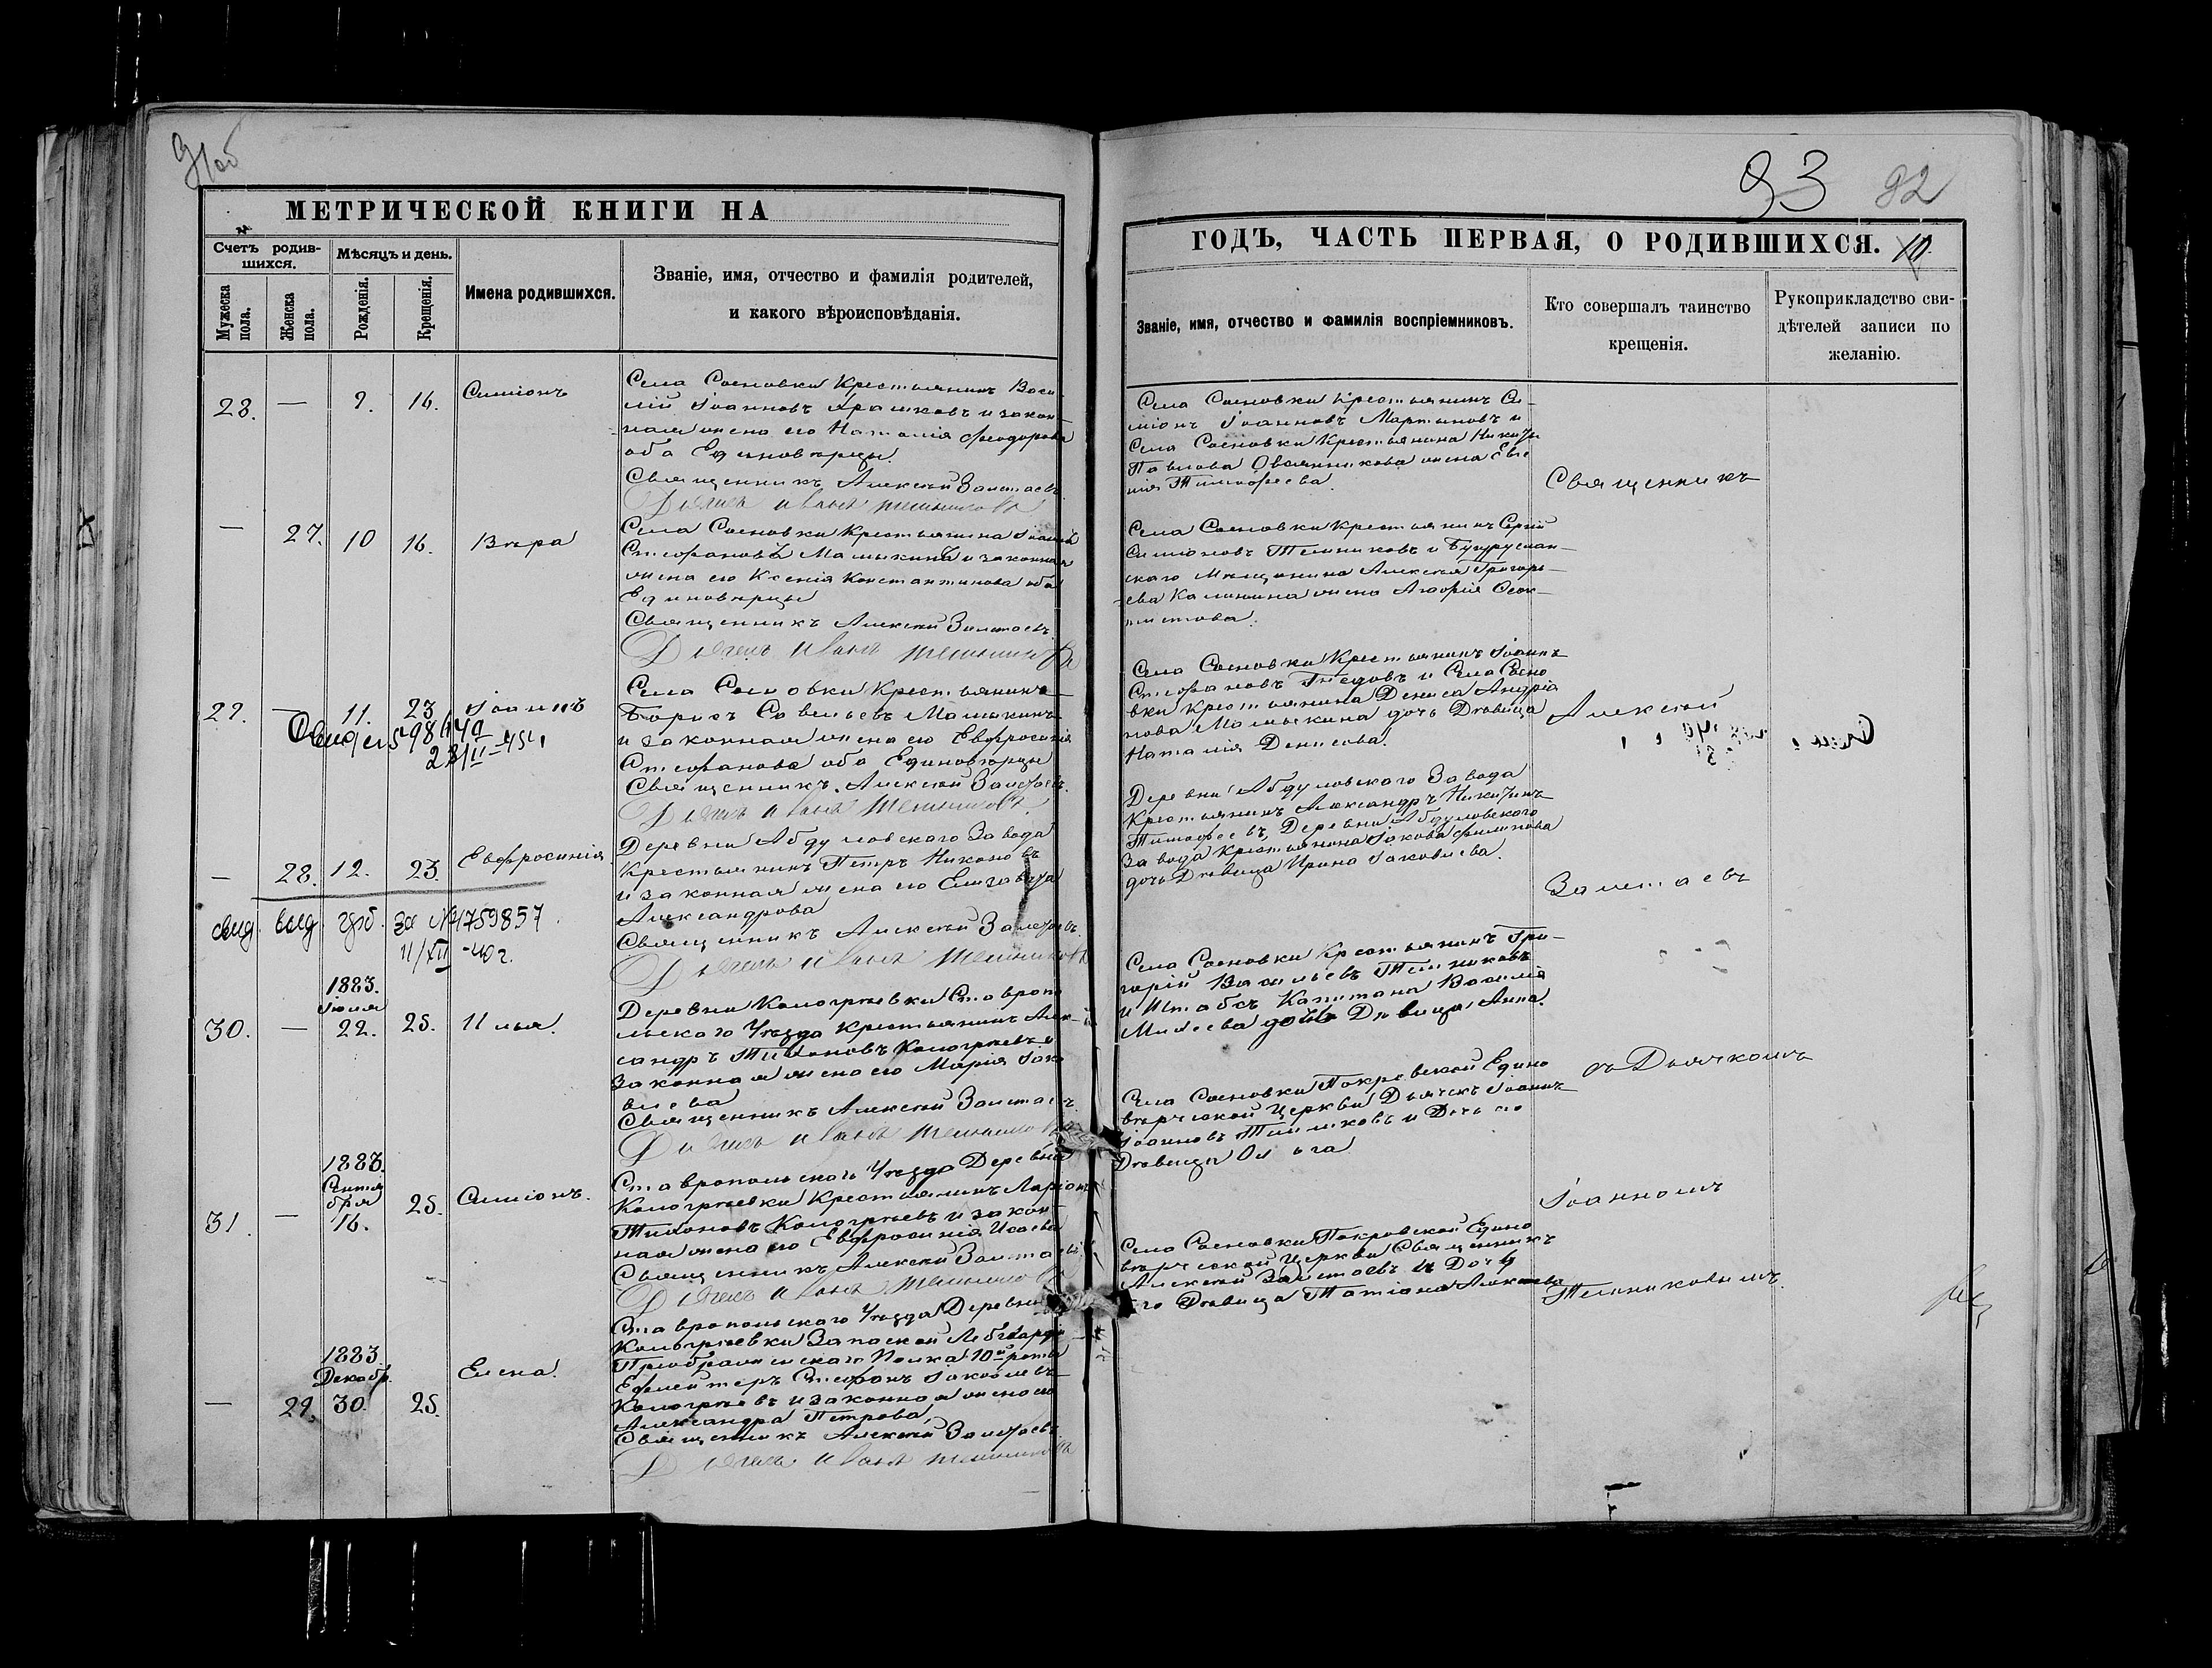 91об
МЕТРИЧЕСКОЙ КНИГИ НА
Счетъ родив-
шихся.
Мѣсяцъ и день.
Имена родившихся.
Званіе, имя, отчество и фамилія родителей,
и какого вѣроисповѣданія.
Мужеска
пола.
Женска
пола.
Рожденія.
Крещенія.
28. — 9. 16. Симіонъ
Села Сосновки Крестьянинъ Васи-
лій Іоанновъ и закон-
ная жена его Наталія Феодорова
оба Единовѣрцы.
Священникъ Алексѣй Залетаевъ.
Дьячекъ Иванъ Тельниковъ
— 27. 10 16. Вѣра
Села Сосновки Крестьянина
Стефановъ Малыкинъ и законная
жена его Ксенія Константинова оба
Единовѣрцы
Священникъ Алексѣй Залетаевъ.
Дьячекъ Иванъ Тельниковъ
29. — 11. 23 Іоаннъ
Села Сосновки Крестьянинъ
Борисъ Савельевъ Малыкинъ
и законная жена его Евфросинія
Стефанова оба Единовѣрцы
Священникъ Алексѣй Залетаевъ.
Дьячекъ Иванъ Тельниковъ
— 28. 12. 23. Евфросинія
Деревни Абдуловского Завода
Крестьянинъ Петръ Никоновъ
и законная жена его Елизавета
Александрова
Священникъ Алексѣй Залетаевъ.
Дьячекъ Иванъ Тельниковъ
свид. выд. за №4759857
11/XII -40г.
1883.
Іюля
30. — 22. 25. Илья.
Деревни Кологрѣевки Ставропо
льского Уѣзда Крестьянинъ Алек-
сандръ Тихоновъ Кологрѣевъ и
законная жена его Марія Іако
влева
Священникъ Алексѣй Залетаевъ.
Дьячекъ Иванъ Тельниковъ
1883.
Сентя
бря
31. — 16. 25. Симіонъ.
Ставропольскаго Уѣзда Деревни
Кологрѣевки Крестьянинъ Ларіонъ
Тихоновъ Кологрѣевъ и закон-
ная жена его Евфросинія Исаева
Священникъ Алексѣй Залетаевъ
Дьячекъ Иванъ Тельниковъ
1883
Декабр.
— 29. 30. 25. Елена.
Ставропольскаго Уѣзда Деревни
Кологрѣевки Запасной Лебгварди
Преображенскаго Полка 10й роты
Ефлейтеръ Стефанъ Іаковлевъ
Кологрѣевъ и законная жена его
Александра Петрова,
Священникъ Алексѣй Залетаевъ
Дьячекъ Иванъ Тельниковъ
93 92
ГОДЪ, ЧАСТЬ ПЕРВАЯ, О РОДИВШИХСЯ. 10.
Званіе, имя, отчество и фамилія воспріемниковъ.
Кто совершалъ таинство
крещенія.
Рукоприкладство сви-
дѣтелей записи по
желанію.
Села Сосновки Крестьянинъ Си-
міонъ Іоанновъ Мартыновъ и
Села Сосновки Крестьянина Никиты
Павлова Овсянникова жена Евге
нія Тимофеева.
Села Сосновки Крестьянинъ Сергій
Симіоновъ Тельниковъ и Бугуруслан-
скаго Мѣщанина Алексѣя Григорь-
ева Калинина жена
Села Сосновки Крестьянинъ Іоаннъ
Стефановъ и Села Сосно
вки Крестьянина Дениса Андрія
нова Малыкина дочь Дѣвица
Наталія Денисова.
Деревни Абдуловского Завода
Крестьянинъ Александръ Никитинъ
Тимофеевъ, Деревни Абдуловского
Завода Крестьянина Іакова Филипова
дочь Дѣвица Ирина Іаковлева.
Села Сосновки Крестьянинъ Гри-
горій Васильевъ Тельниковъ
и Штабсъ Капитана Василія
Михеева дочь Дѣвица Анна.
Села Сосновки Покровской Едино
вѣрческой Церкви Дьячекъ Іоаннъ
Іоанновъ Тельниковъ и Дочь его
Дѣвица Ольга
Села Сосновки Покровской Едино
вѣрческой Церкви Священникъ
Алексѣй Залетаевъ и Дочь
его Дѣвица Татіана Алексѣева
Священникъ
Алексѣй
Залетаевъ
съ Дьячкомъ
Іоанномъ
Тельниковымъ.